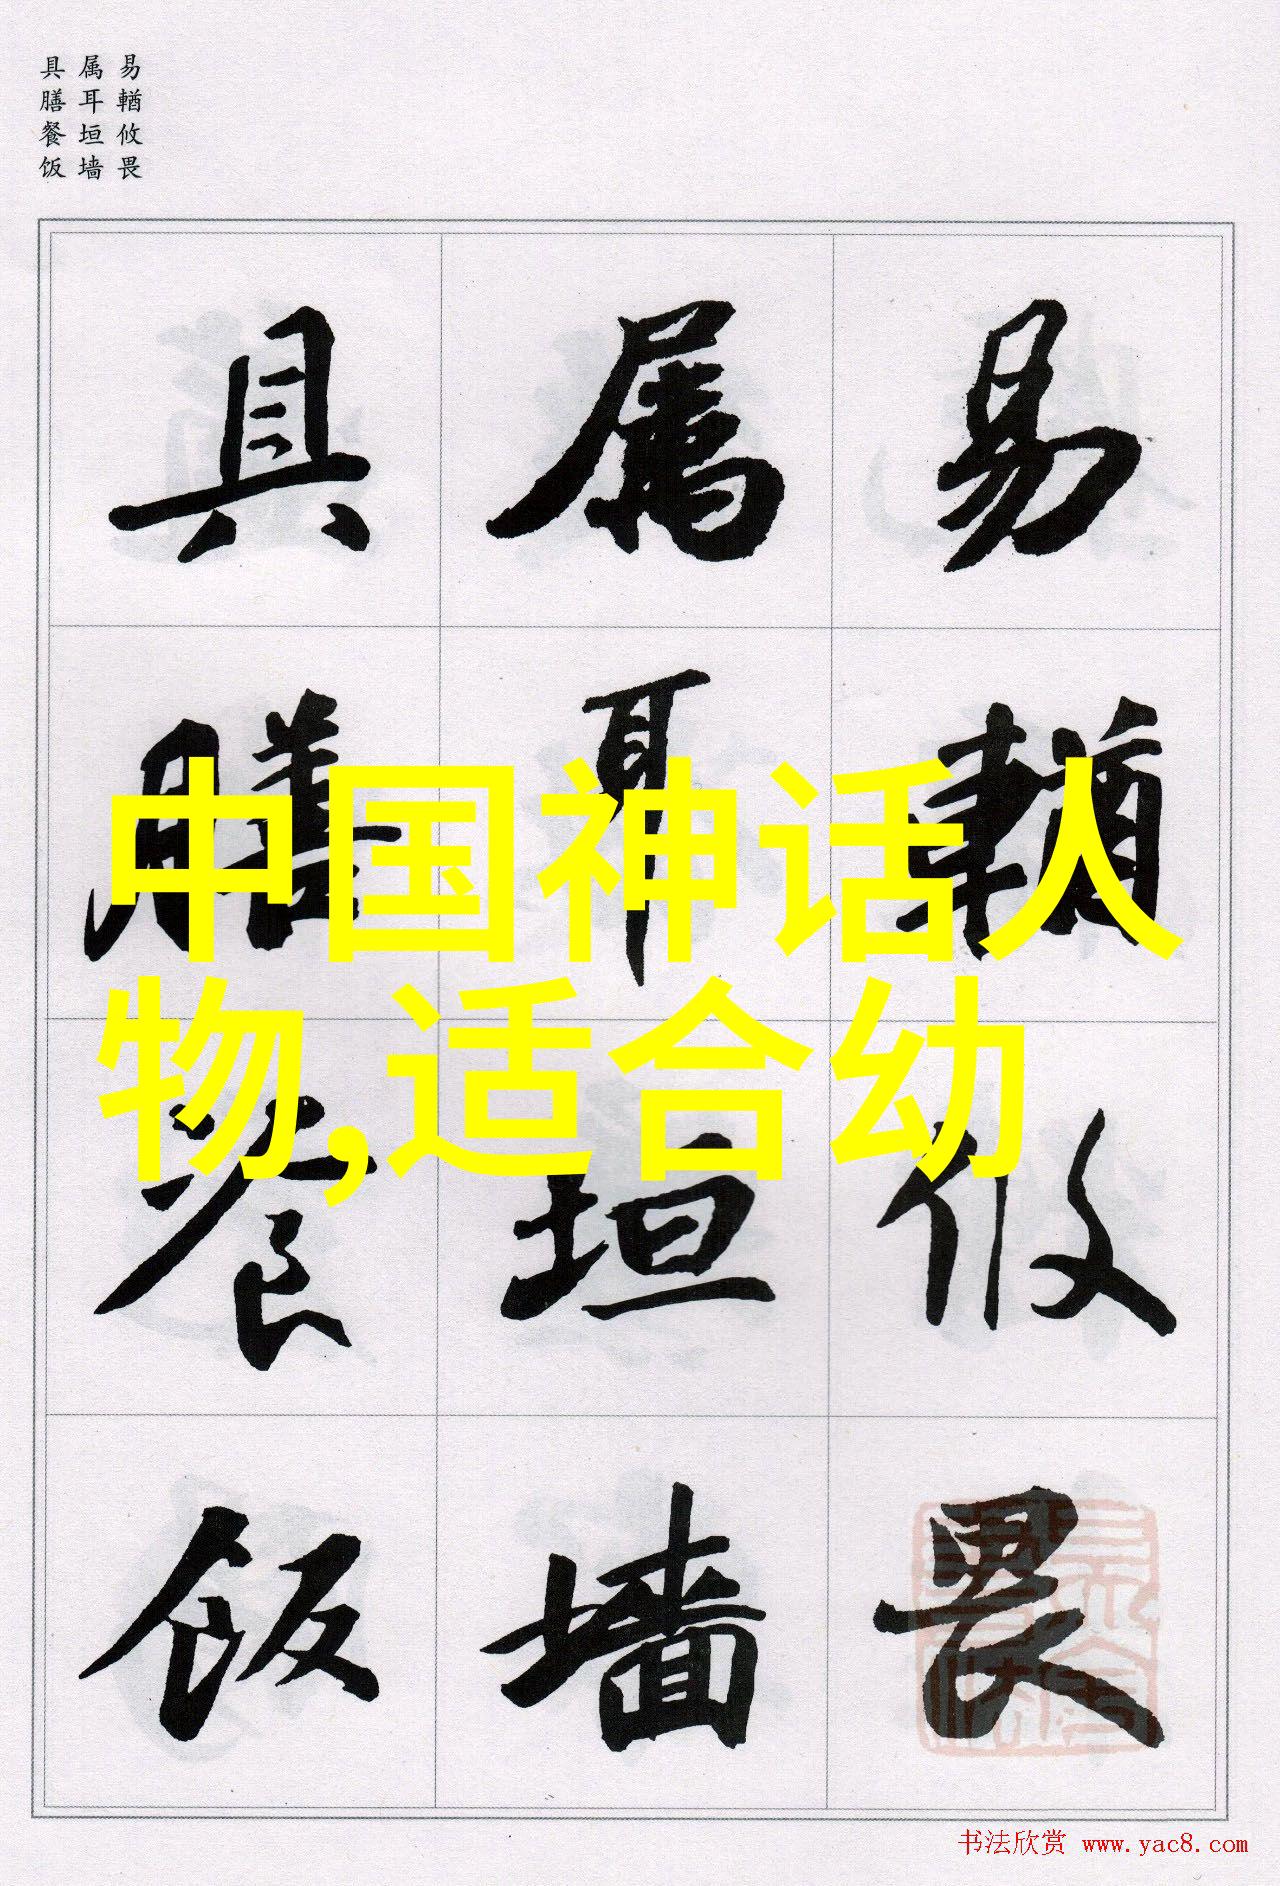 易輶攸畏
属耳垣墙
具膳餐饭
易輶攸畏
属耳垣墙
具膳餐饭
中国神话人
物,适合幼
书法欣赏 www.yac8.com